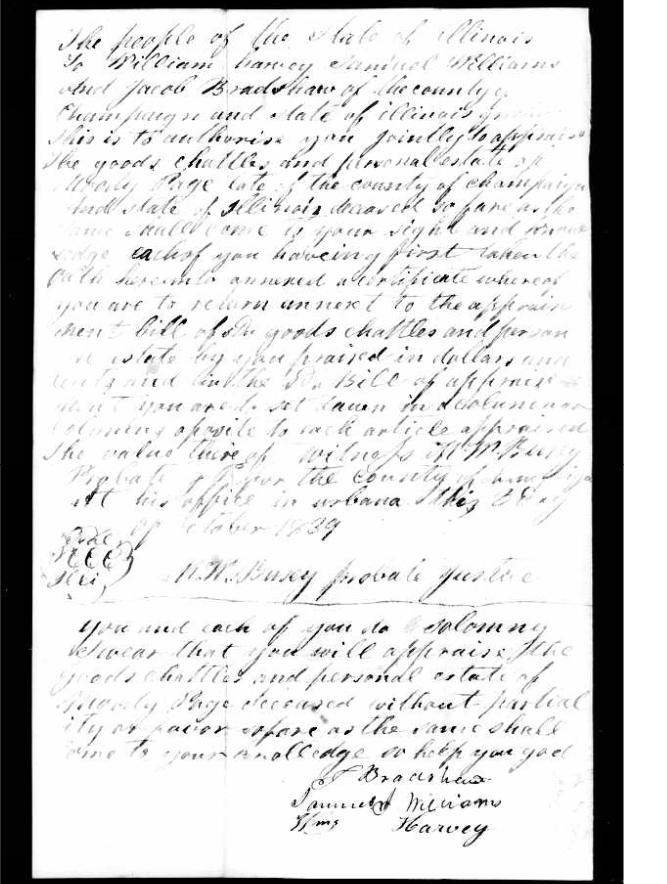 The people of the State of illinois
To William harvey Samuel Williams
and Jacob Bradshaw of the county of
Champaign and state of illinois
this is to authorise you jointly to appraise
the goods chattles and personal estate of
Moorly Page late of the county of champaign
And state of Illinois deceased so fare as the
same shall come to your sight and know
ledge each of you haveing first taken the
Oath hereunto annexed a certificate whereof
you are to return annext to the apprais
ment bill of Sd goods chattles and person
al estate by you praised in dollars and
cents and in the Sd Bill of apprais
ment you are to set down in a column or
columns oposite to each article appraised
the value there of witness M W Busey
Probate of for the county of champaign
At his office in urbana this 3 Day
of october 1839
M. W. Busey probate Justice
you and each of you do solomny
Swear that you will appraise the
goods chattles and personal estate of
Moorly Page deceased without partial
ity or favor so fare as the same shall
come to your knolledge so help you god
J Bradshaw
Samuel Williams
Wm Harvey